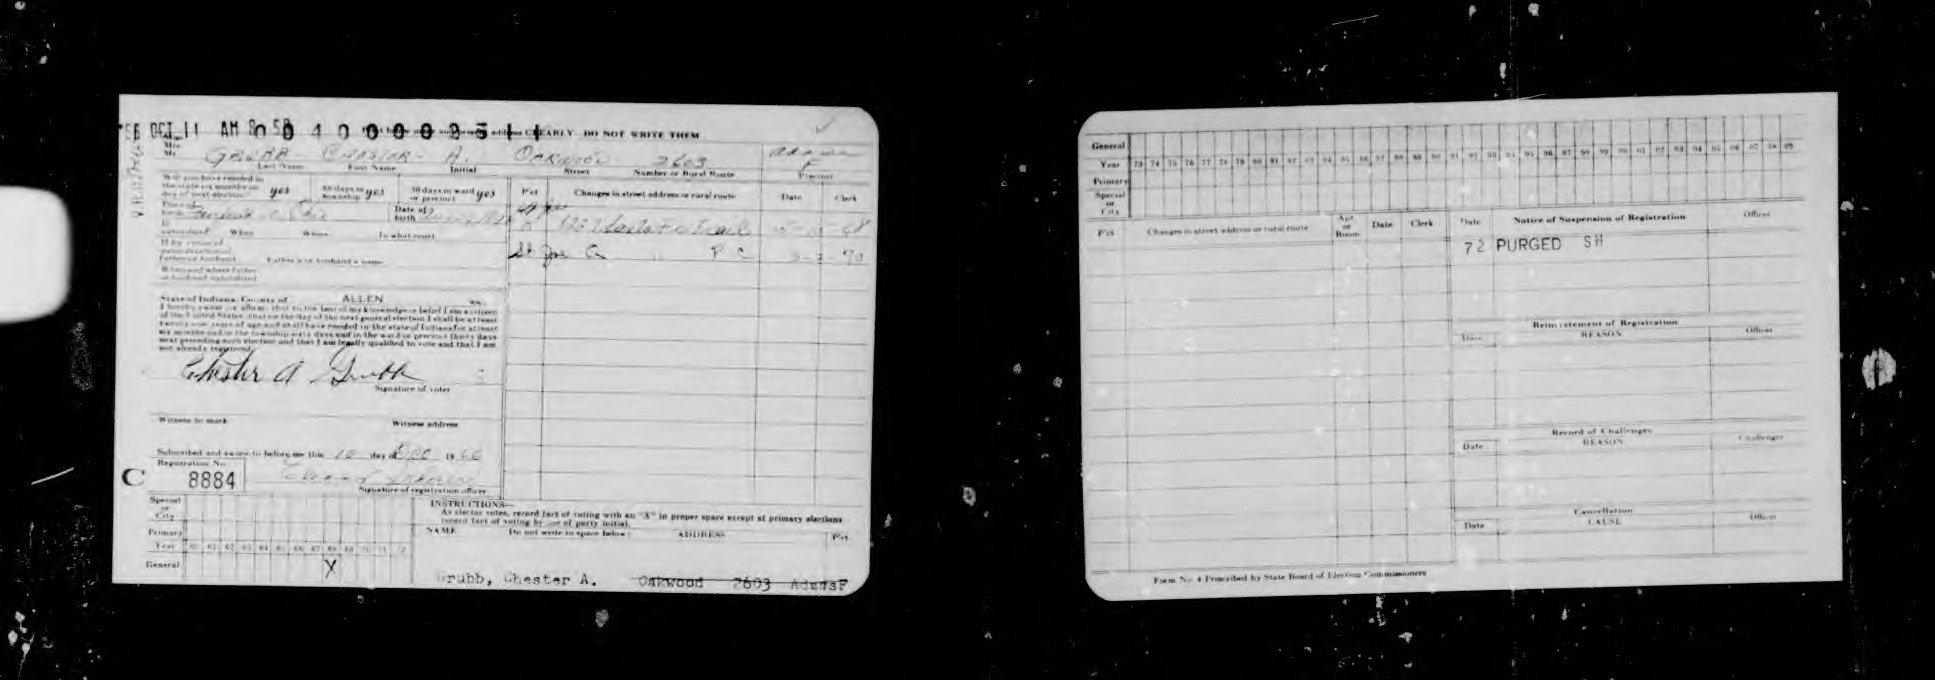 OCT 11 AM 8 58 0040000251 CLEARLY DO NOT WRITE THEM
Mrs.
Mr. GRUBB CHESTER A. OAKWOOD 2603
Last Name First Name Initial Street Number or Rural Route Precinct
F
Will you have resided in the state six months on day of next election? yes 60 days in township yes 30 days in ward or precinct yes
Pct Changes in street address or rural route Date Clerk
Place of birth Ohio Date of birth
If naturalized When Where To what court
Father's or husband's name
St Joe G " P C
State of Indiana, County of ALLEN ss.
I hereby swear or affirm that to the best of my knowledge or belief I am a citizen
of the United States, that on the day of the next general election I shall be at least
twenty-one years of age and shall have resided in the state of Indiana for at least
six months and in the township sixty days and in the ward or precinct thirty days
next preceding such election and that I am legally qualified to vote and that I am
not already registered.
Chester A Grubb
Signature of voter
Witness to mark Witness address
Subscribed and sworn to before me this 10 day of Oct 1966
Registration No.
C 8884
Signature of registration officer
Special or City
Primary
Year 60 61 62 63 64 65 66 67 68 69 70 71 72
General X
INSTRUCTIONS—
As elector votes, record fact of voting with an "X" in proper space except at primary elections
record fact of voting by use of party initial.
NAME Do not write in space below ADDRESS Pct.
Grubb, Chester A. Oakwood 2603 AdamsF
General
Year 73 74 75 76 77 78 79 80 81 82 83 84 85 86 87 88 89 90 91 92 93 94 95 96 97 98 99 00 01 02 03 04 05 06 07 08 09
Primary
Special or City
Pct Changes in street address or rural route Apt. or Room Date Clerk
Date Notice of Suspension of Registration Officer
72 PURGED SH
Reinstatement of Registration
Date REASON Officer
Record of Challenges
Date REASON Challenger
Cancellation
Date CAUSE Officer
Form No. 4 Prescribed by State Board of Election Commissioners